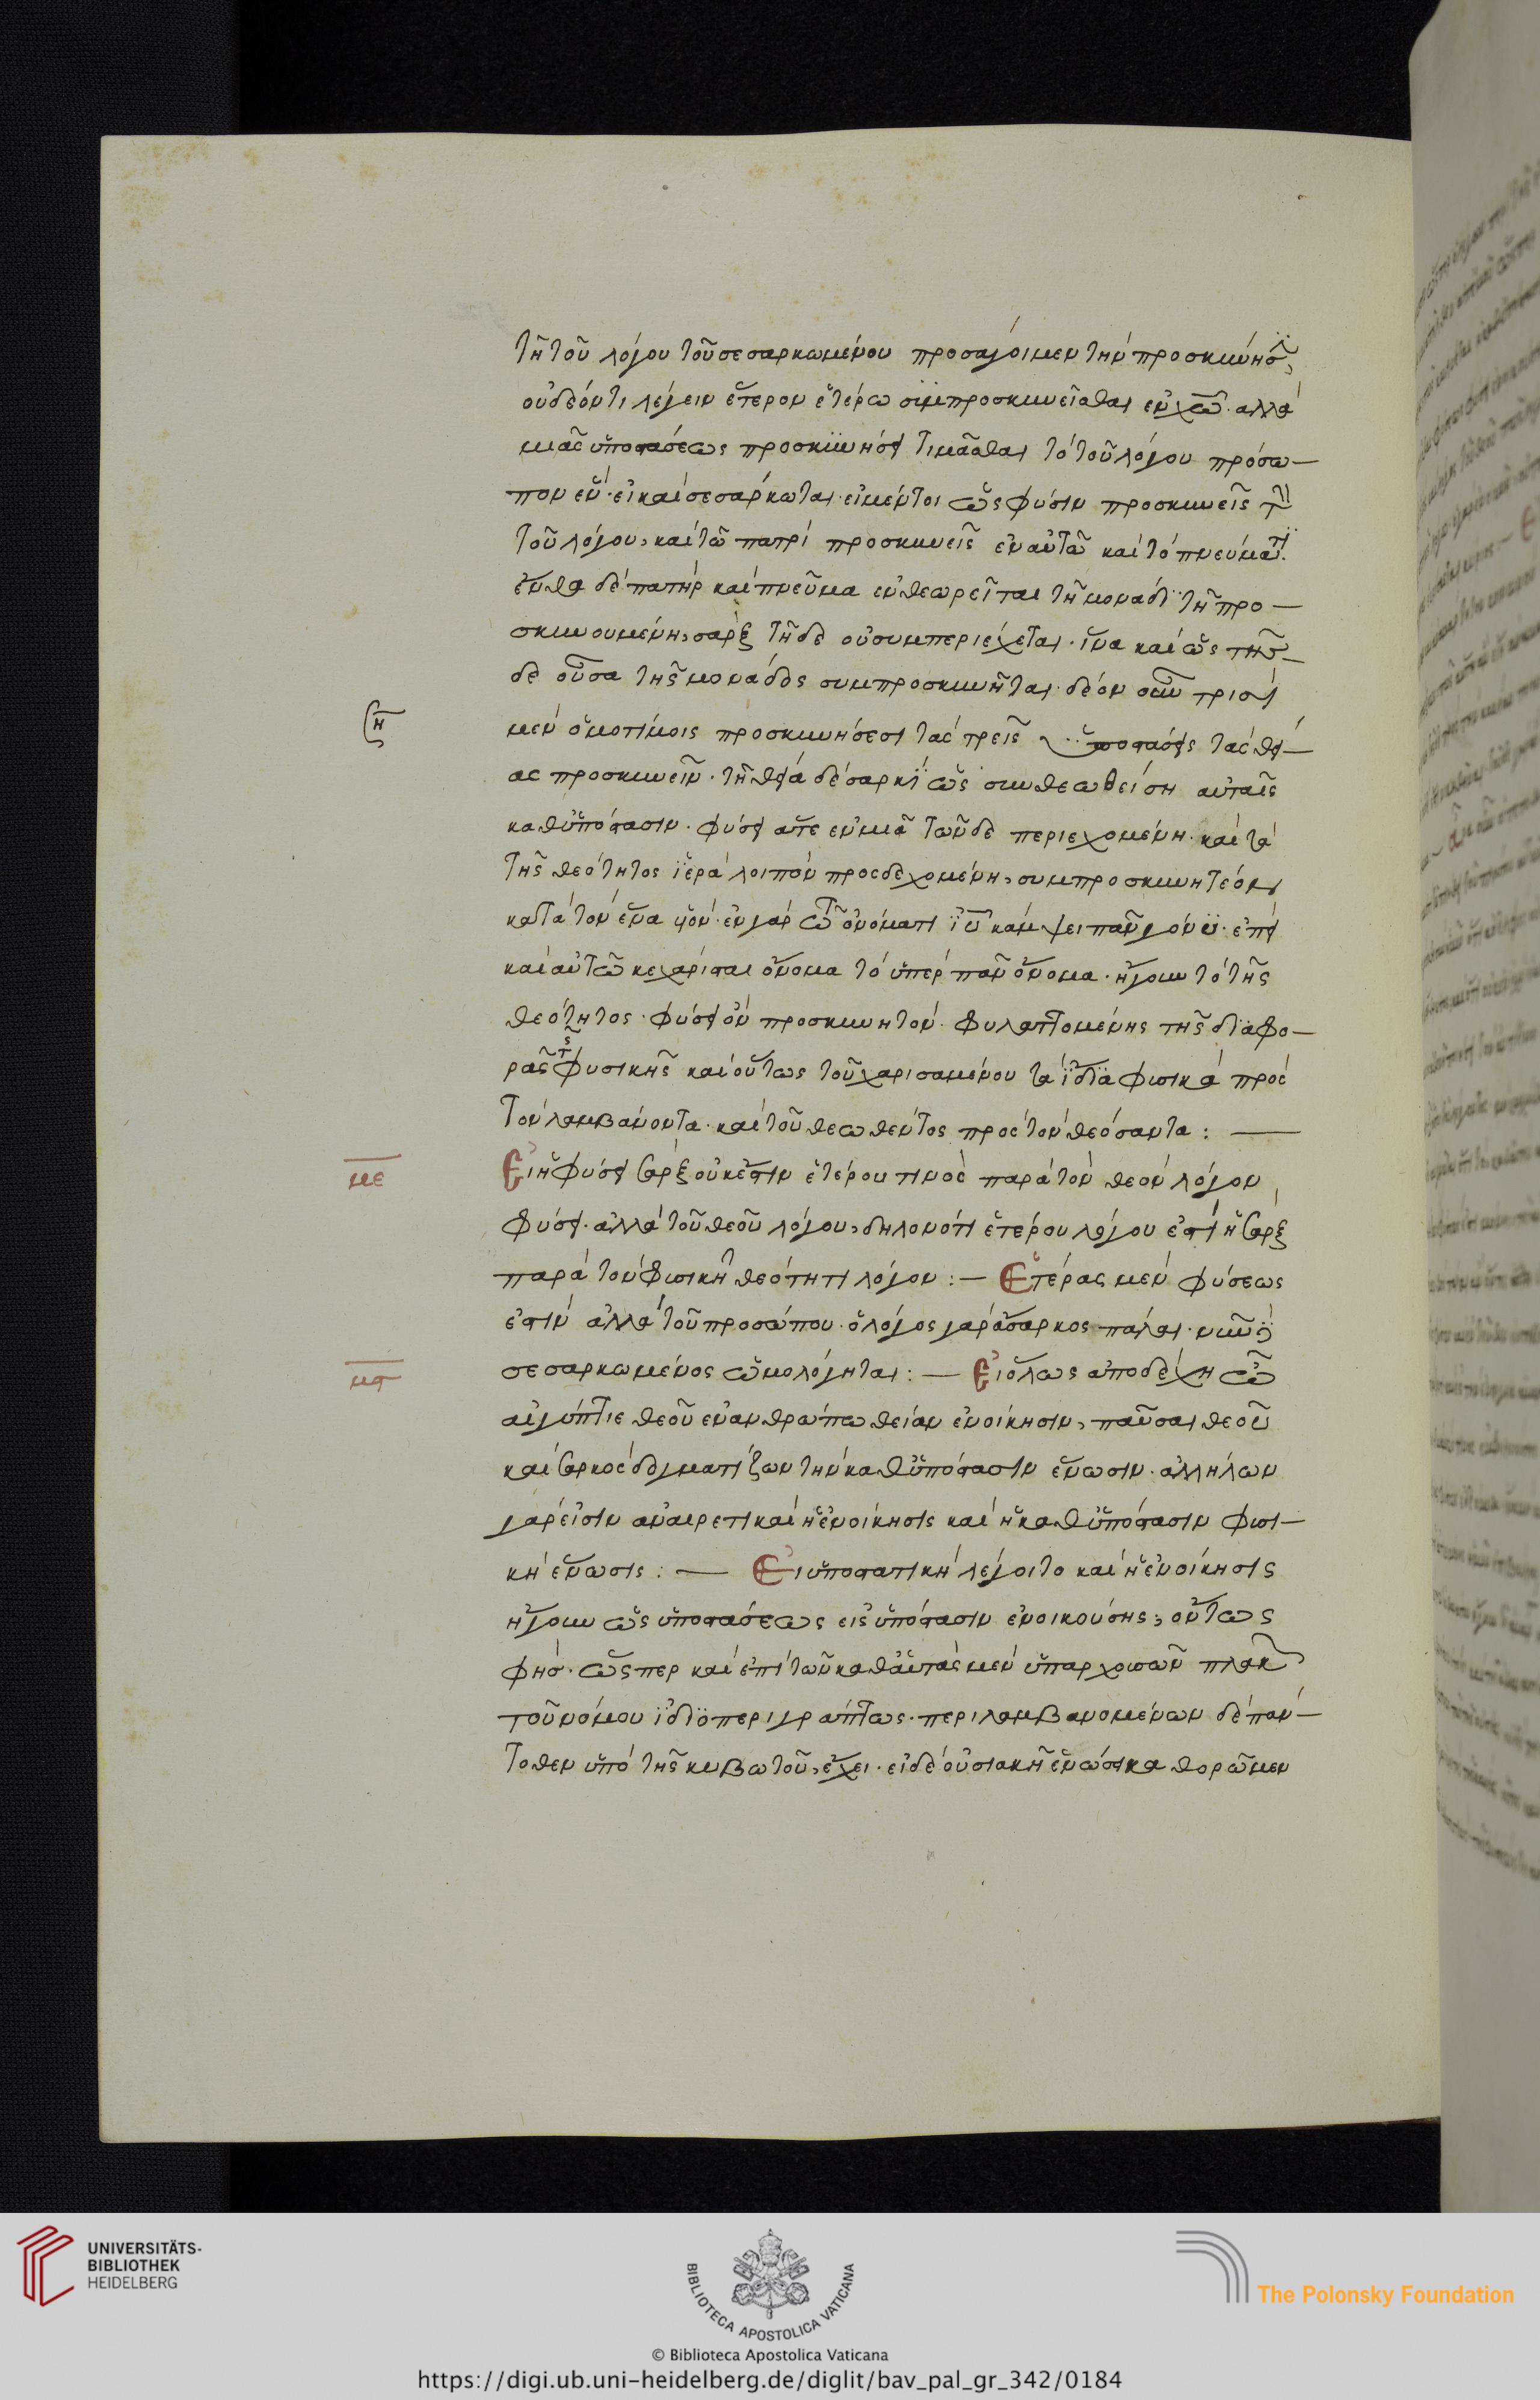 τῆ τοῦ λόγου τοῦ σεσαρκωμένου προσαγόιμεν τὴν προσκύνησιν,
οὐδέον τι λέγειν ἕτερον ἑτέρω συμπροσκυνεῖσθαι ἐν χω. ἀλλὰ
μιᾶς ὑποστάσεως προσκυνήσει τιμᾶσθαι τὸ τοῦ λόγου πρόσω—
πον ἕν. εἰ καὶ σεσάρκωται. εἰ μέντοι ὡς φύσιν προσκυνεῖς τὴν
τοῦ λόγου, καὶ τῶ πατρὶ προσκυνεῖς ἐν αὐτῶ καὶ τὸ πνεύματι.
ἔνθα δὲ πατὴρ καὶ πνεῦμα ἐνθεωρεῖται τῆ μονάδι τῆ προ—
σκυνουμένη, σαρξ τῆδε οὐ συμπεριέχεται. ἵνα καὶ ὡς τῆσ—
δε οὖσα τῆς μονάδος συμπροσκυνῆται. δέον οὖν τρισὶ
μὲν ὁμοτίμοις προσκυνήσεσι τὰς τρεῖς ὑποστάσεις τὰς θεί—
ας προσκυνεῖν. τῆ θεία δὲ σαρκὶ ὡς συνθεωθείση αὐταῖς
καθ ὑπόστασιν. φύσει ἅτε ἐν μιᾶ τῶνδε περιεχομένη. καὶ τὰ
τῆς θεότητος ἱερὰ λοιπὸν προσδεχομένη, συμπροσκυνητέον
κατὰ τὸν ἕνα υἱόν. ἐν γὰρ τῶ ὀνόματι ιυ κάμψει πᾶν γόνυ. ἐπεὶ
καὶ αὐτῶ κεχάρισται ὄνομα τὸ ὑπὲρ πᾶν ὄνομα. ἤγουν τὸ τῆς
θεότητος. φύσει ὂν προσκυνητόν. φυλαττομένης τῆς διαφο—
ρᾶς τῆς φυσικῆς καὶ οὕτως τοῦ χαρισαμένου τὰ ἴδια φυσικὰ πρὸς
τὸν λαμβάνοντα. καὶ τοῦ θεωθέντος πρὸς τὸν θεόσαντα : —
με Εἰ ἡ φύσει σὰρξ οὐκ ἔστιν ἑτέρου τινὸς παρὰ τὸν θεὸν λόγον
φύσει. ἀλλὰ τοῦ θεοῦ λόγου, δηλονότι ἑτέρου λόγου ἐστὶ ἡ σὰρξ
παρὰ τὸν φυσικῆ θεότητι λόγον : — Ἑτέρας μὲν φύσεως
ἐστὶν ἀλλὰ τοῦ προσώπου. ὁ λόγος γὰρ ἄσαρκος πάλαι. νῦν
σεσαρκωμένος ὡμολόγηται : —
μϛ Εἰ ὅλως ἀποδέχη ὦ
αἰγύπτιε θεοῦ ἐν ἀνθρώπω θείαν ἐνοίκησιν, παῦσαι θεοῦ
καὶ σαρκὸς δογματίζων τὴν καθ ὑπόστασιν ἕνωσιν. ἀλλήλων
γὰρ εἰσὶν ἀναιρετικαὶ ἡ ἐνοίκησις καὶ ἡ καθ ὑπόστασιν φυσι—
κὴ ἕνωσις : — Εἰ ὑποστατικὴ λέγοιτο καὶ ἡ ἐνοίκησις
ἤγουν ὡς ὑποστάσεως εἰς ὑπόστασιν ἐνοικούσης, οὕτως
φησ. ὥσπερ καὶ ἐπὶ τῶν καθ αὑτὰς μὲν ὑπαρχουσῶν πλακῶν
τοῦ νόμου ἰδιοπεριγράπτως. περιλαμβανομένων δὲ πάν—
τοθεν ὑπὸ τῆς κιβωτοῦ, ἔχει. εἰ δὲ οὐσιακῆ ἑνώσει καθορῶμεν
UNIVERSITÄTS-
BIBLIOTHEK
HEIDELBERG
BIBLIOTECA APOSTOLICA VATICANA
The Polonsky Foundation
© Biblioteca Apostolica Vaticana
https://digi.ub.uni-heidelberg.de/diglit/bav_pal_gr_342/0184